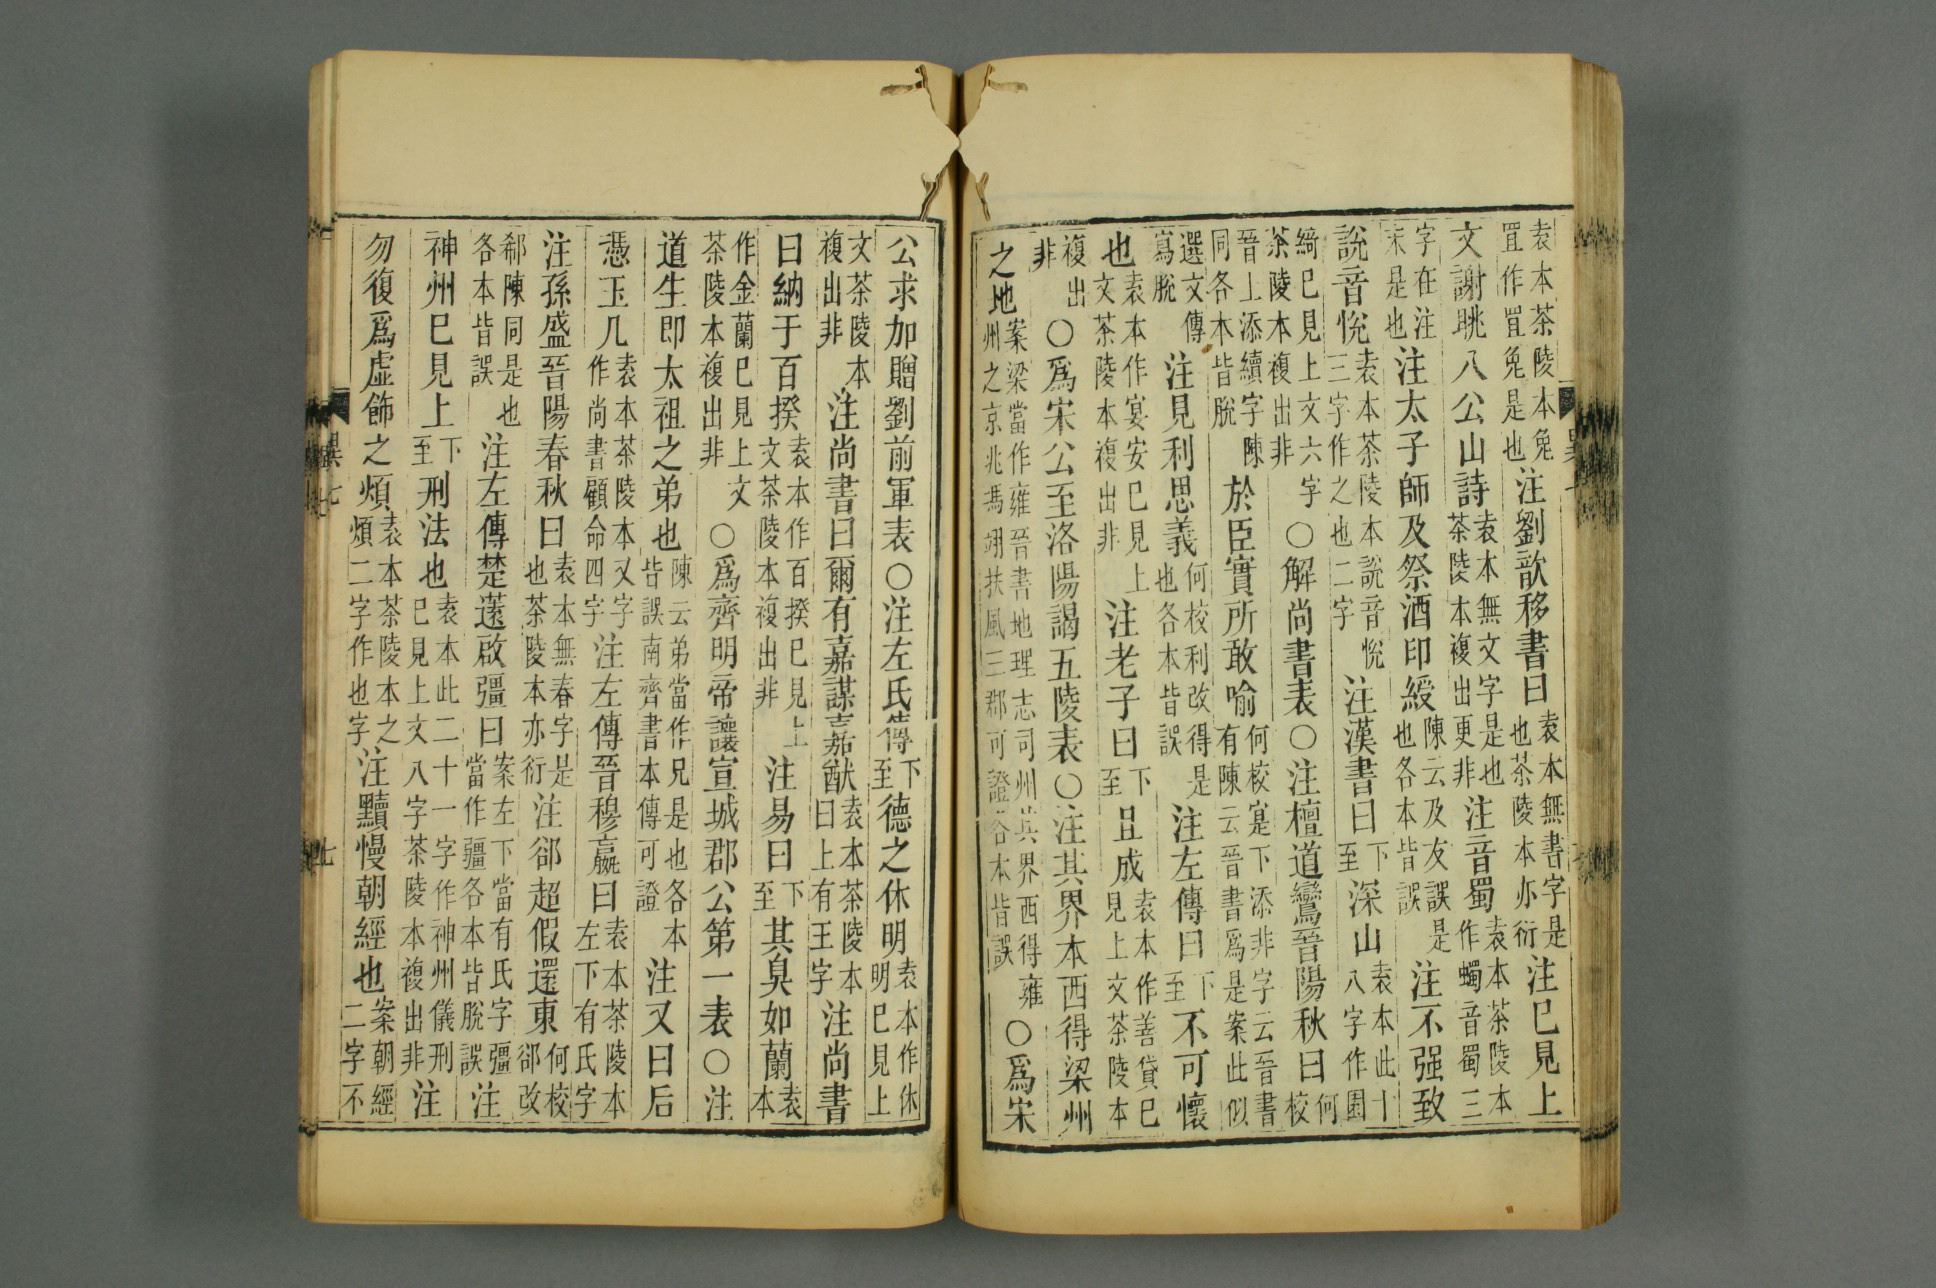 袁本茶陵本兔罝作罝兔是也注劉歆移書曰袁本無書字是也茶陵本亦衍注巳見上
文謝眺八公山詩袁本無文字是也茶陵本複出更非注音蜀袁本茶陵本作蠋音蜀三
字在注末是也注太子師及祭酒印綬陳云及友誤是也各本皆誤注不强致
說音悅袁本茶陵本說音悅三字作之也二字注漢書曰下至深山袁本此十八字作園
綺巳見上文六字茶陵本複出非○解尚書表○注檀道鸞晉陽秋曰何校
晉上添續字陳同各本皆脫於臣實所敢喻何校寔下添非字云晉書有陳云晉書爲是案此似
選文傳寫脫注見利思義何校利改得是也各本皆誤注左傳曰下至不可懷
也袁本作宴安巳見上文茶陵本複出非注老子曰下至且成袁本作善貸巳見上文茶陵本
複出非○爲宋公至洛陽謁五陵表○注其界本西得梁州
之地案梁當作雍晉書地理志司州其界西得雍州之京兆馮翊扶風三郡可證各本皆誤○爲宋
公求加贈劉前軍表○注左氏傳下至德之休明袁本作休明巳見上
文茶陵本複出非注尚書曰爾有嘉謀嘉猷袁本茶陵本曰上有王字注尚書
曰納于百揆袁本作百揆巳見上文茶陵本複出非注易曰下至其臭如蘭袁本
作金蘭巳見上文茶陵本複出非○爲齊明帝讓宣城郡公第一表○注
道生即太祖之弟也陳云弟當作兄是也各本皆誤南齊書本傳可證注又曰后
憑玉几袁本茶陵本又字作尚書顧命四字注左傳晉穆嬴曰袁本茶陵本左下有氏字
注孫盛晉陽春秋曰袁本無春字是也茶陵本亦衍注郤超假還東何校郤改
郗陳同是也各本皆誤注左傳楚薳啟彊曰案左下當有氏字彊當作疆各本皆脫誤注
神州巳見上下至刑法也袁本此二十一字作神州儀刑巳見上文八字茶陵本複出非注
勿復爲虛飾之煩袁本茶陵本之煩二字作也字注黷慢朝經也案朝經二字不
異七
七